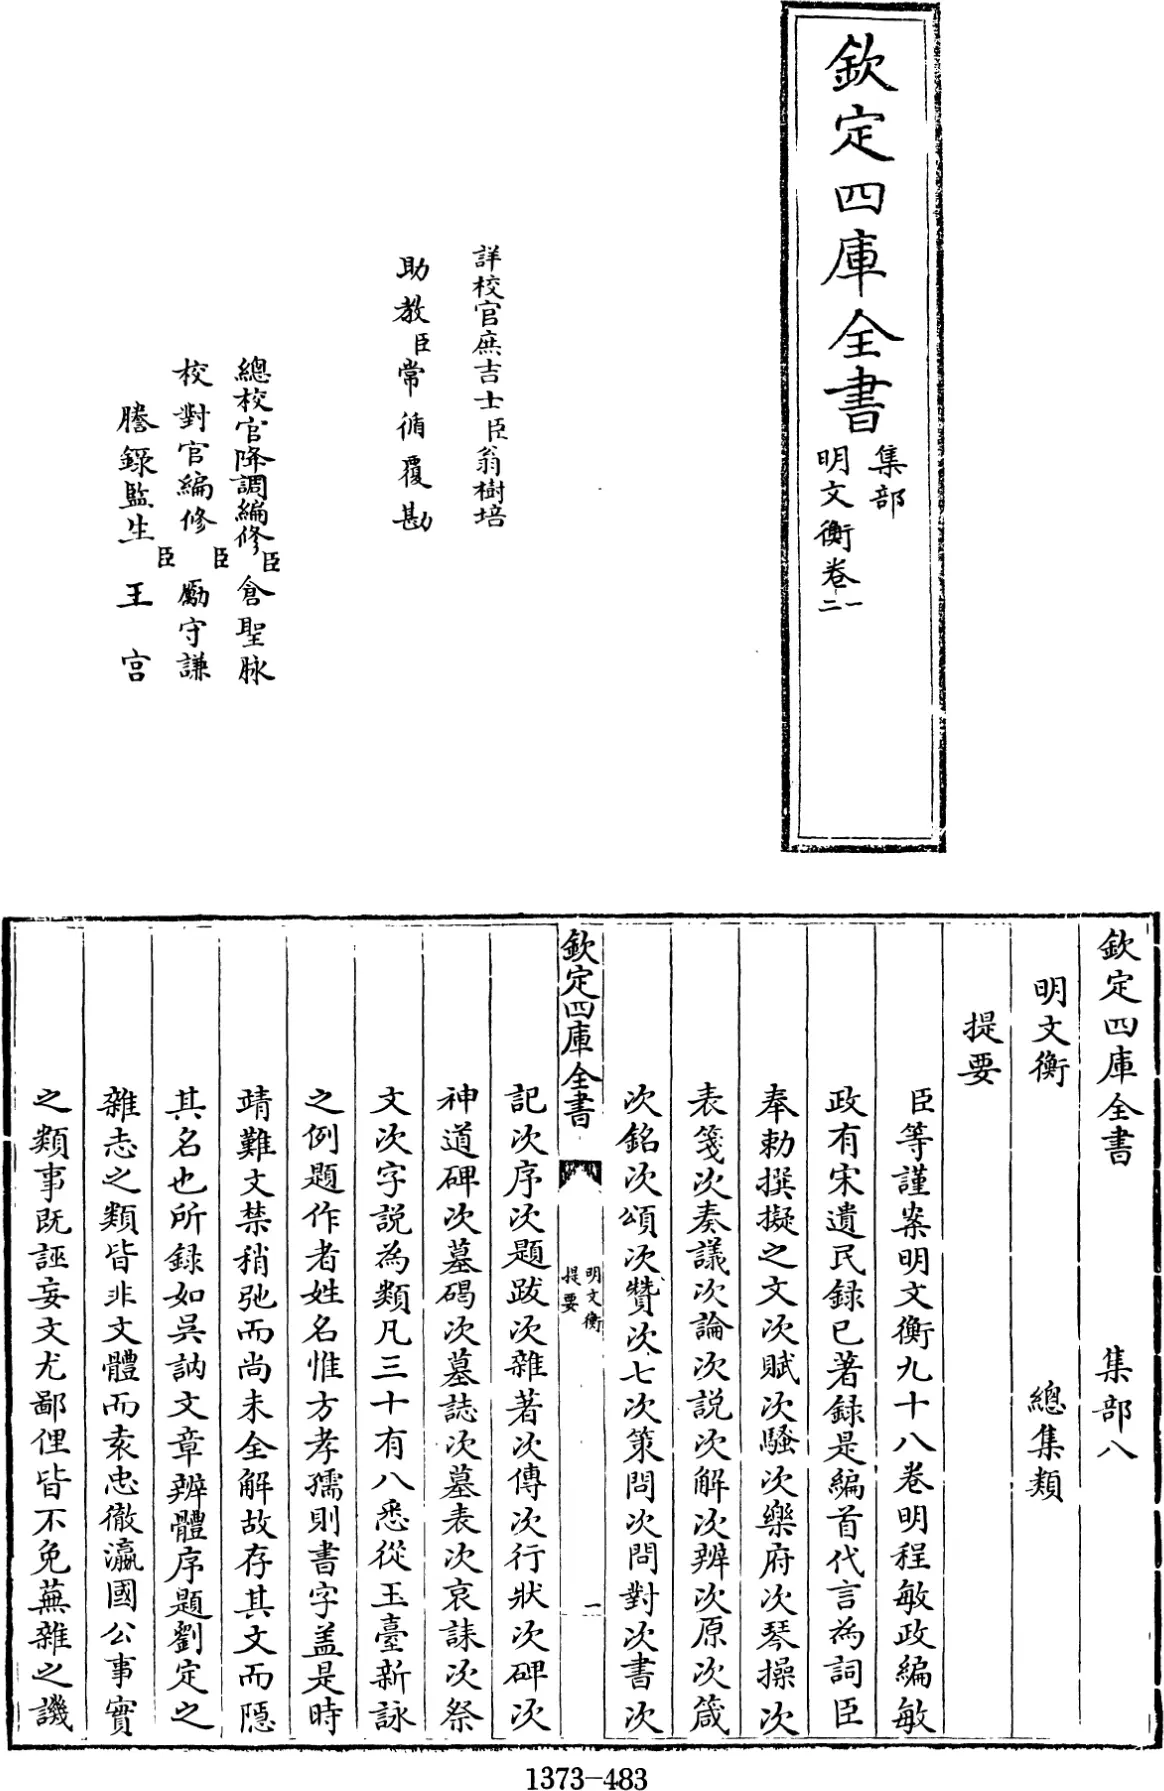 欽定四庫全書
集部
明文衡卷一
二
詳校官庶吉士臣翁樹培
助教臣常循覆勘
總校官降調編修臣倉聖脉
校對官編修臣勵守謙
謄錄監生臣王宫
欽定四庫全書 集部八
明文衡 總集類
提要
臣等謹案明文衡九十八卷明程敏政編敏
政有宋遺民録已著録是編首代言為詞臣
奉勅撰擬之文次賦次騷次樂府次琴操次
表箋次奏議次論次説次解次辨次原次箴
次銘次頌次贊次七次策問次問對次書次
欽定四庫全書
明文衡
提要
一
記次序次題跋次雜著次傳次行狀次碑次
神道碑次墓碣次墓誌次墓表次哀誄次祭
文次字説為類凡三十有八悉從玉臺新詠
之例題作者姓名惟方孝孺則書字盖是時
靖難文禁稍弛而尚未全解故存其文而隠
其名也所録如吳訥文章辨體序題劉定之
雜志之類皆非文體而袁忠徹瀛國公事實
之類事既誣妄文尤鄙俚皆不免蕪雜之譏
1373-483